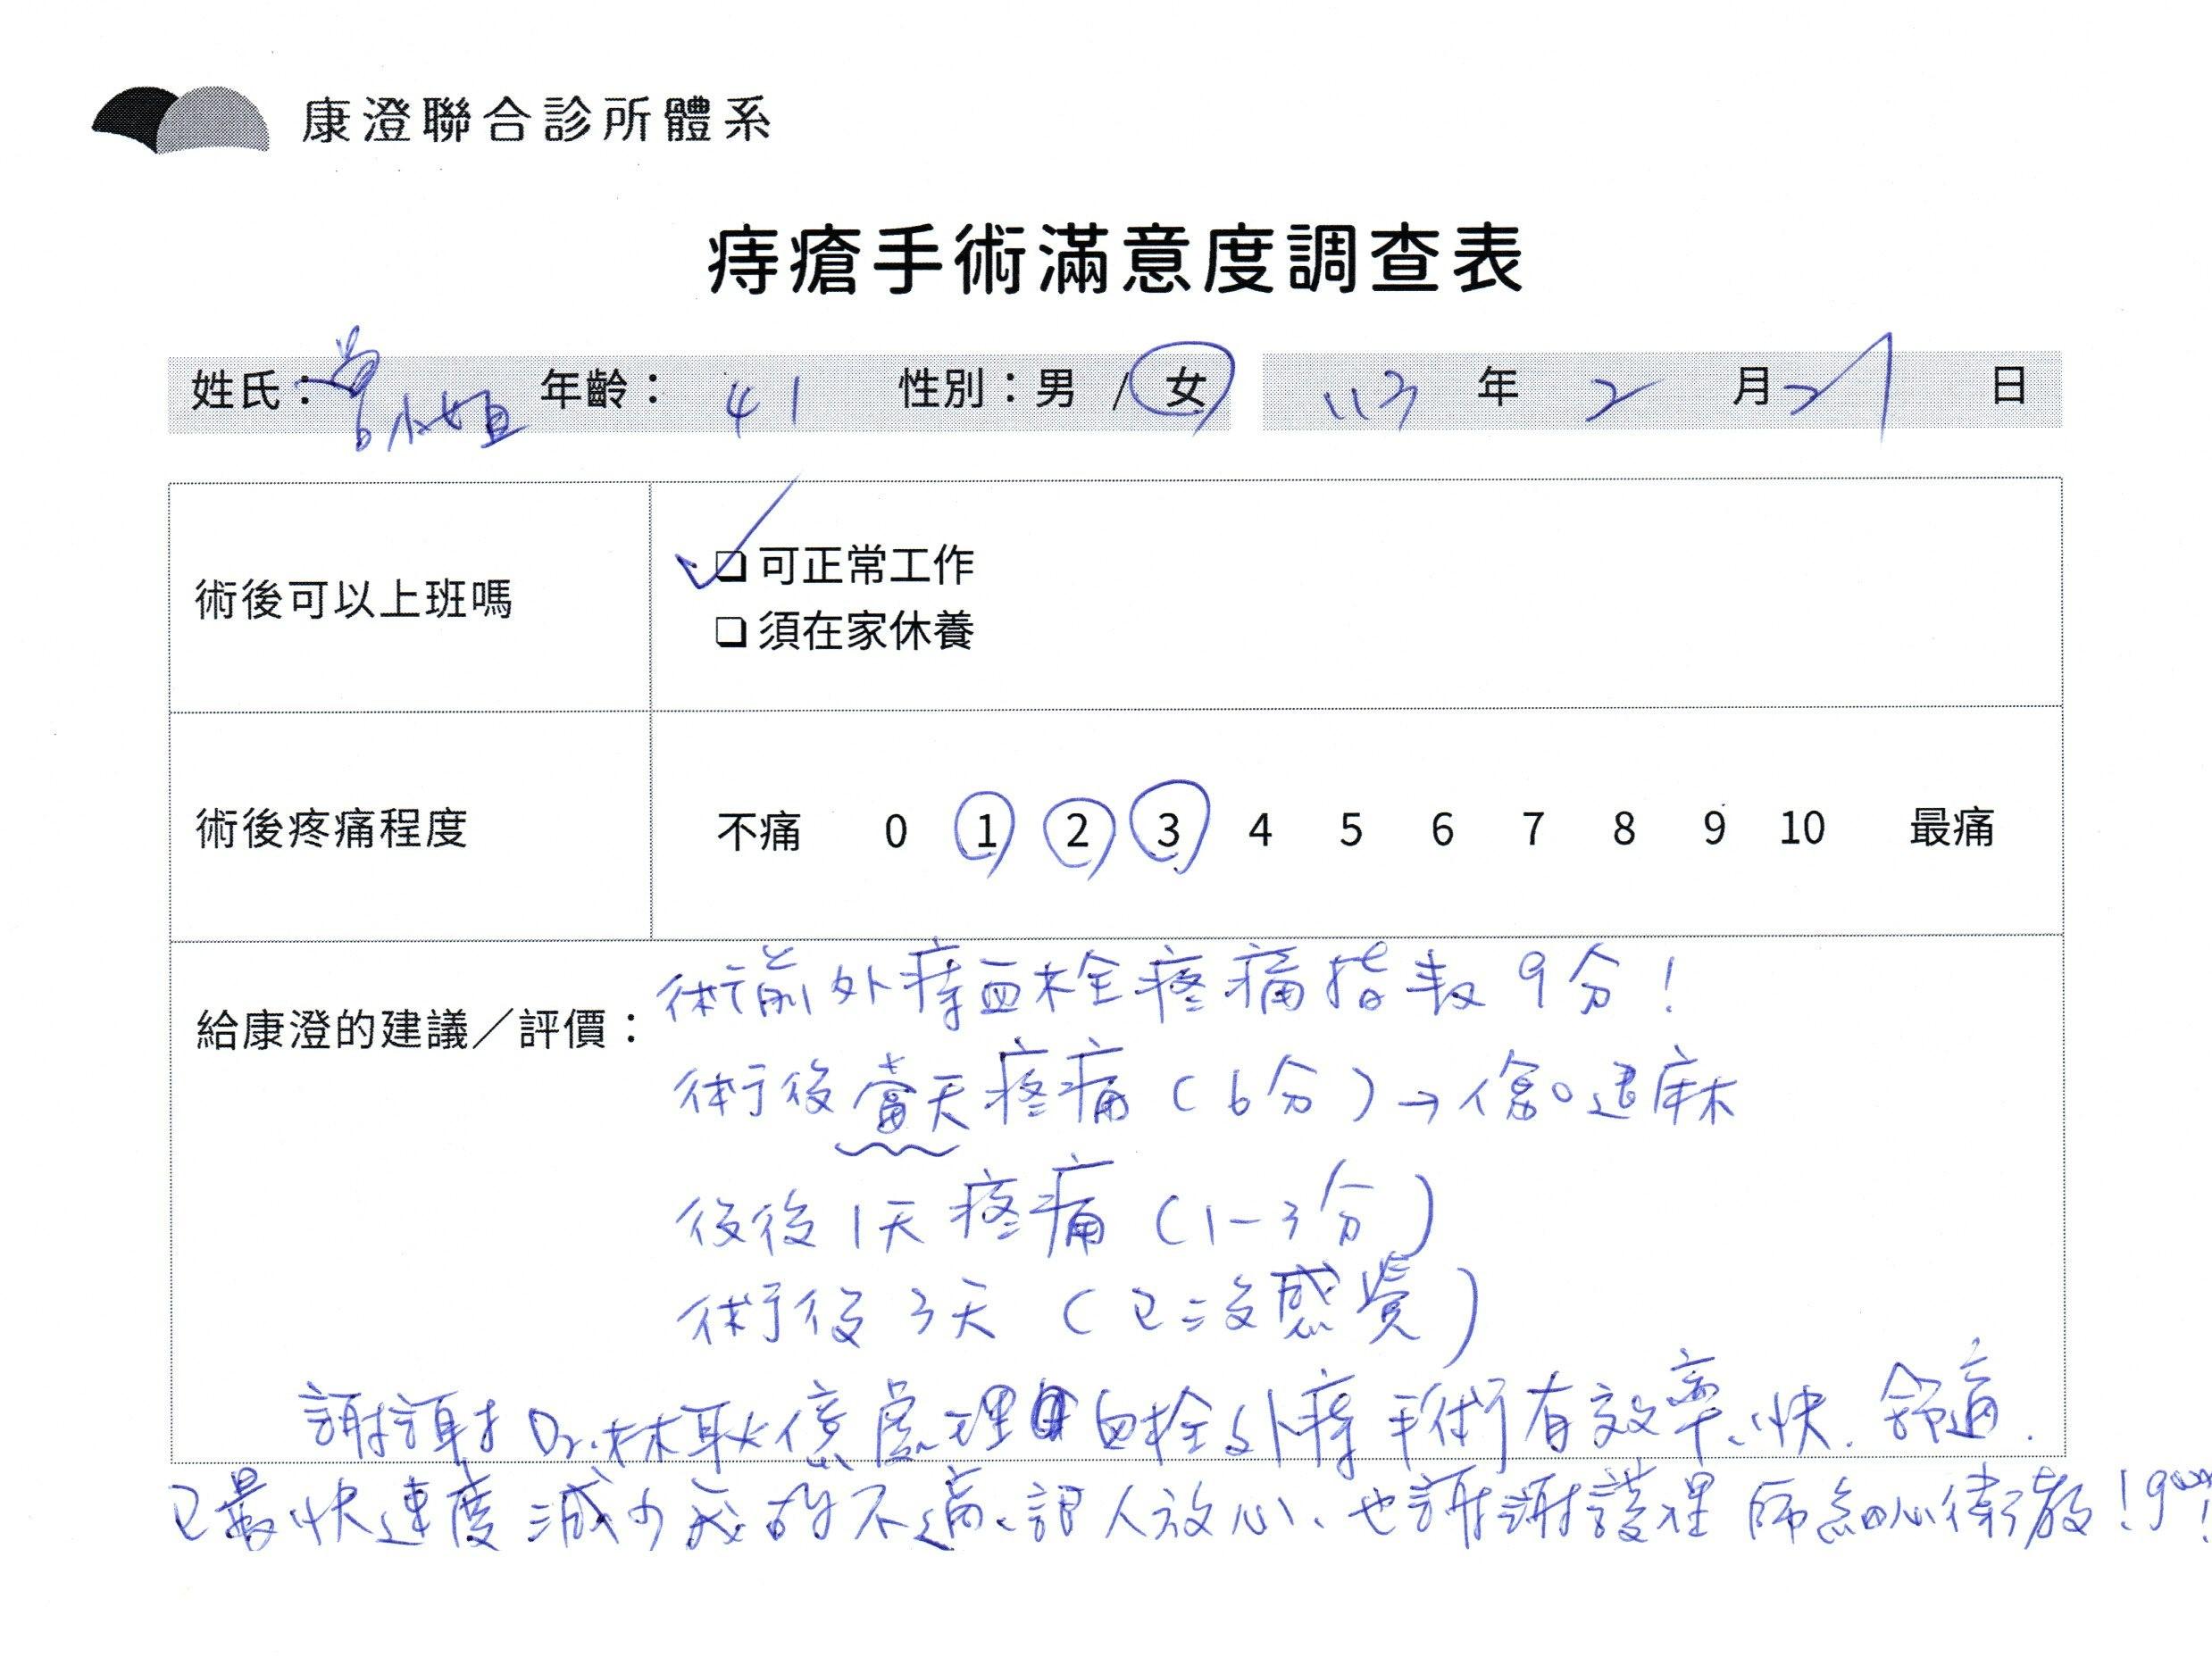 康澄聯合診所體系
痔瘡手術滿意度調查表
姓氏：曾小姐 年齡：41 性別：男 / 女 113 年 2 月 21 日
術後可以上班嗎
❏ 可正常工作
❏ 須在家休養
術後疼痛程度 不痛 0 1 2 3 4 5 6 7 8 9 10 最痛
給康澄的建議／評價：
術前外痔血栓疼痛指數 9分！
術後當天疼痛（6分）→傷口退麻
後後1天疼痛（1-3分）
術後3天（已沒感覺）
謝謝 Dr.林耿億處理血栓外痔手術有效率、快、舒適.
已最快速度減少我的不適、讓人放心、也謝謝護理師細心衛教！good!